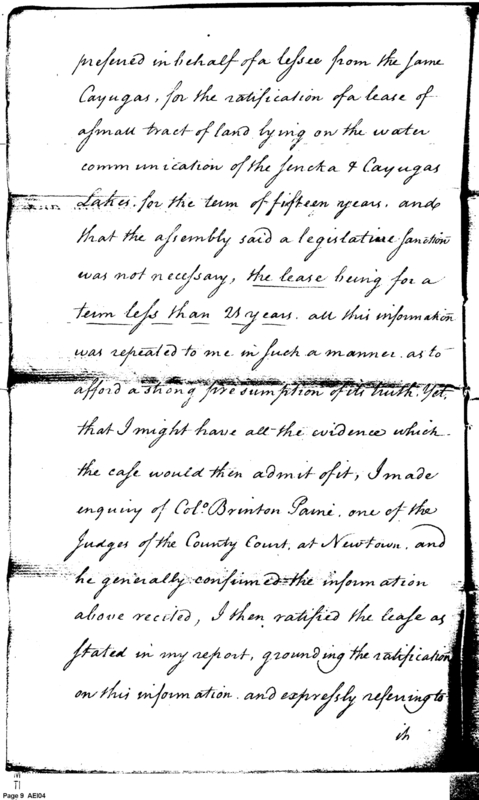 preferred in behalf of a lessee from the same
Cayugas, for the ratification of a lease of
a small tract of land lying on the water
communication of the Seneka & Cayugas
Lakes. for the term of fifteen years. and
that the assembly said a legislative sanction
was not necessary, the lease being for a
term less than 21 years. all this information
was repeated to me in such a manner. as to
afford a strong presumption of its truth. Yet,
that I might have all the evidence which
the case would then admit of it, I made
enquiry of Colo. Brinton Paine. one of the
Judges of the County Court. at Newtown. and
he generally confirmed the information
above recited, I then ratified the lease as
stated in my report, grounding the ratification
on this information. and expressly referring to
it
Page 9 AEI04